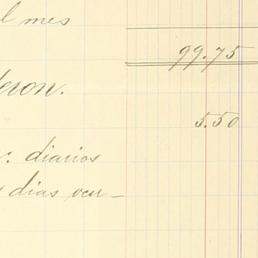 l mes
99.75
eron.
5.50
: diarios
dias ven-